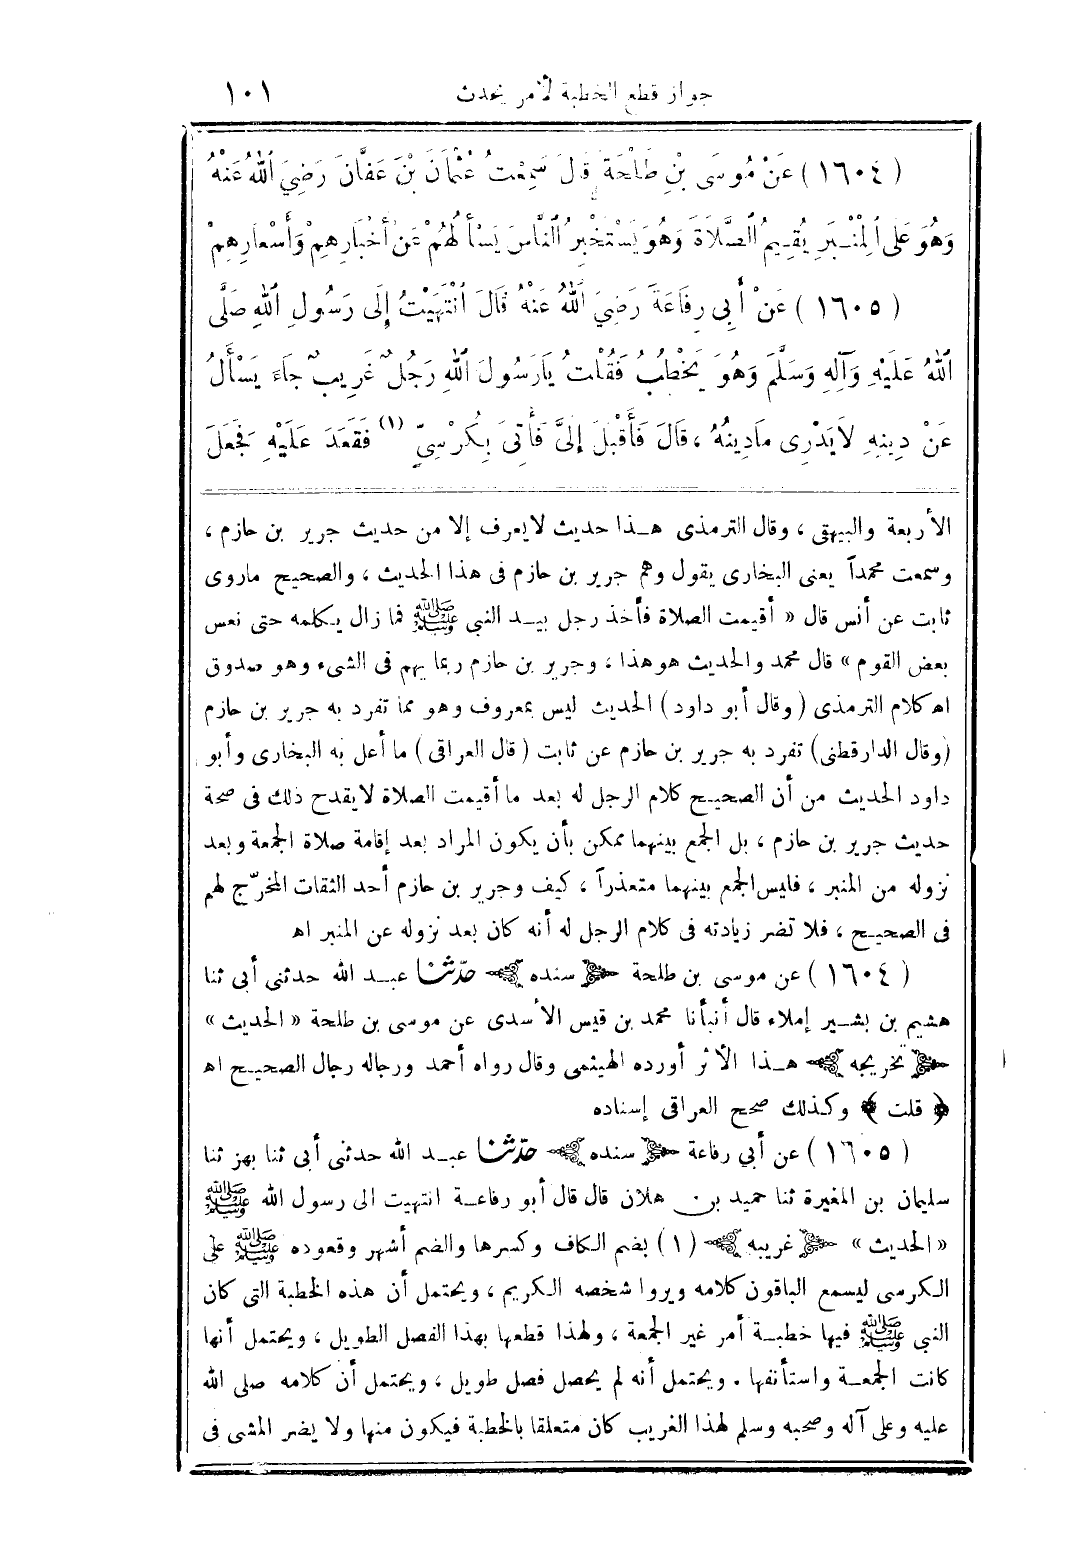 جواز قطع الخطبة لأمر يحدث ١٠١
( ١٦٠٤ ) عَنْ مُوسَى بْنِ طَلْحَةَ قَالَ سَمِعْتُ عُثْمَانَ بْنَ عَفَّانَ رَضِيَ اللهُ عَنْهُ
وَهُوَ عَلَى الْمِنْبَرِ يُقِيمُ الصَّلَاةَ وَهُوَ يَسْتَخْبِرُ النَّاسَ يَسْأَلُهُمْ عَنْ أَخْبَارِهِمْ وَأَسْعَارِهِمْ
( ١٦٠٥ ) عَنْ أَبِي رِفَاعَةَ رَضِيَ اللهُ عَنْهُ قَالَ انْتَهَيْتُ إِلَى رَسُولِ اللهِ صَلَّى
اللهُ عَلَيْهِ وَآلِهِ وَسَلَّمَ وَهُوَ يَخْطُبُ فَقُلْتُ يَارَسُولَ اللهِ رَجُلٌ غَرِيبٌ جَاءَ يَسْأَلُ
عَنْ دِينِهِ لَا يَدْرِى مَادِينُهُ ، قَالَ فَأَقْبَلَ إِلَىَّ فَأُتِىَ بِكُرْسِىٍّ (١) فَقَعَدَ عَلَيْهِ فَجَعَلَ
الأربعة والبيهقى ، وقال الترمذى هـذا حديث لايعرف إلا من حديث جرير بن حازم ،
وسمعت محمداً يعنى البخارى يقول وهم جرير بن حازم فى هذا الحديث ، والصحيح ماروى
ثابت عن أنس قال « أقيمت الصلاة فأخذ رجل بيـد النبى ﷺ فما زال يـكلمه حتى نعس
بعض القوم » قال محمد والحديث هو هذا ، وجرير بن حازم ربما يهم فى الشىء وهو صدوق
اه كلام الترمذى ( وقال أبو داود ) الحديث ليس بمعروف وهو مما تفرد به جرير بن حازم
(وقال الدارقطنى) تفرد به جرير بن حازم عن ثابت ( قال العراقى ) ما أعل به البخارى وأبو
داود الحديث من أن الصحيح كلام الرجل له بعد ما أقيمت الصلاة لايقدح ذلك فى صحة
حديث جرير بن حازم ، بل الجمع بينهما ممكن بأن يكون المراد بعد إقامة صلاة الجمعة وبعد
نزوله من المنبر ، فليس الجمع بينهما متعذراً ، كيف وجرير بن حازم أحد الثقات المخرّج لهم
فى الصحيـح ، فلا تضر زيادته فى كلام الرجل له أنه كان بعد نزوله عن المنبر اه
( ١٦٠٤ ) عن موسى بن طلحة ﴿ سنده ﴾ حدّثنا عبـد الله حدثنى أبى ثنا
هشيم بن بشـير إملاء قال أنبأنا محمد بن قيس الأسدى عن موسى بن طلحة « الحديث »
﴿ تخريجه ﴾ هـذا الأثر أورده الهيثمى وقال رواه أحمد ورجاله رجال الصحيـح اه
﴿ قلت ﴾ وكذلك صحح العراقى إسناده
( ١٦٠٥ ) عن أبي رفاعة ﴿ سنده ﴾ حدّثنا عبـد الله حدثنى أبى ثنا بهز ثنا
سليمان بن المغيرة ثنا حميد بن هلان قال قال أبو رفاعـة انتهيت الى رسول الله ﷺ
« الحديث » ﴿ غريبه ﴾ ( ١ ) بضم الكاف وكسرها والضم أشهر وقعوده ﷺ على
الـكرسى ليسمع الباقون كلامه ويروا شخصه الـكريم ، ويحتمل أن هذه الخطبة التى كان
النبى ﷺ فيها خطبـة أمر غير الجمعة ، ولهذا قطعها بهذا الفصل الطويل ، ويحتمل أنها
كانت الجمعـة واستأنفها . ويحتمل أنه لم يحصل فصل طويل ، ويحتمل أن كلامه صلى الله
عليه وعلى آله وصحبه وسلم لهذا الغريب كان متعلقا بالخطبة فيكون منها ولا يضر المشى فى